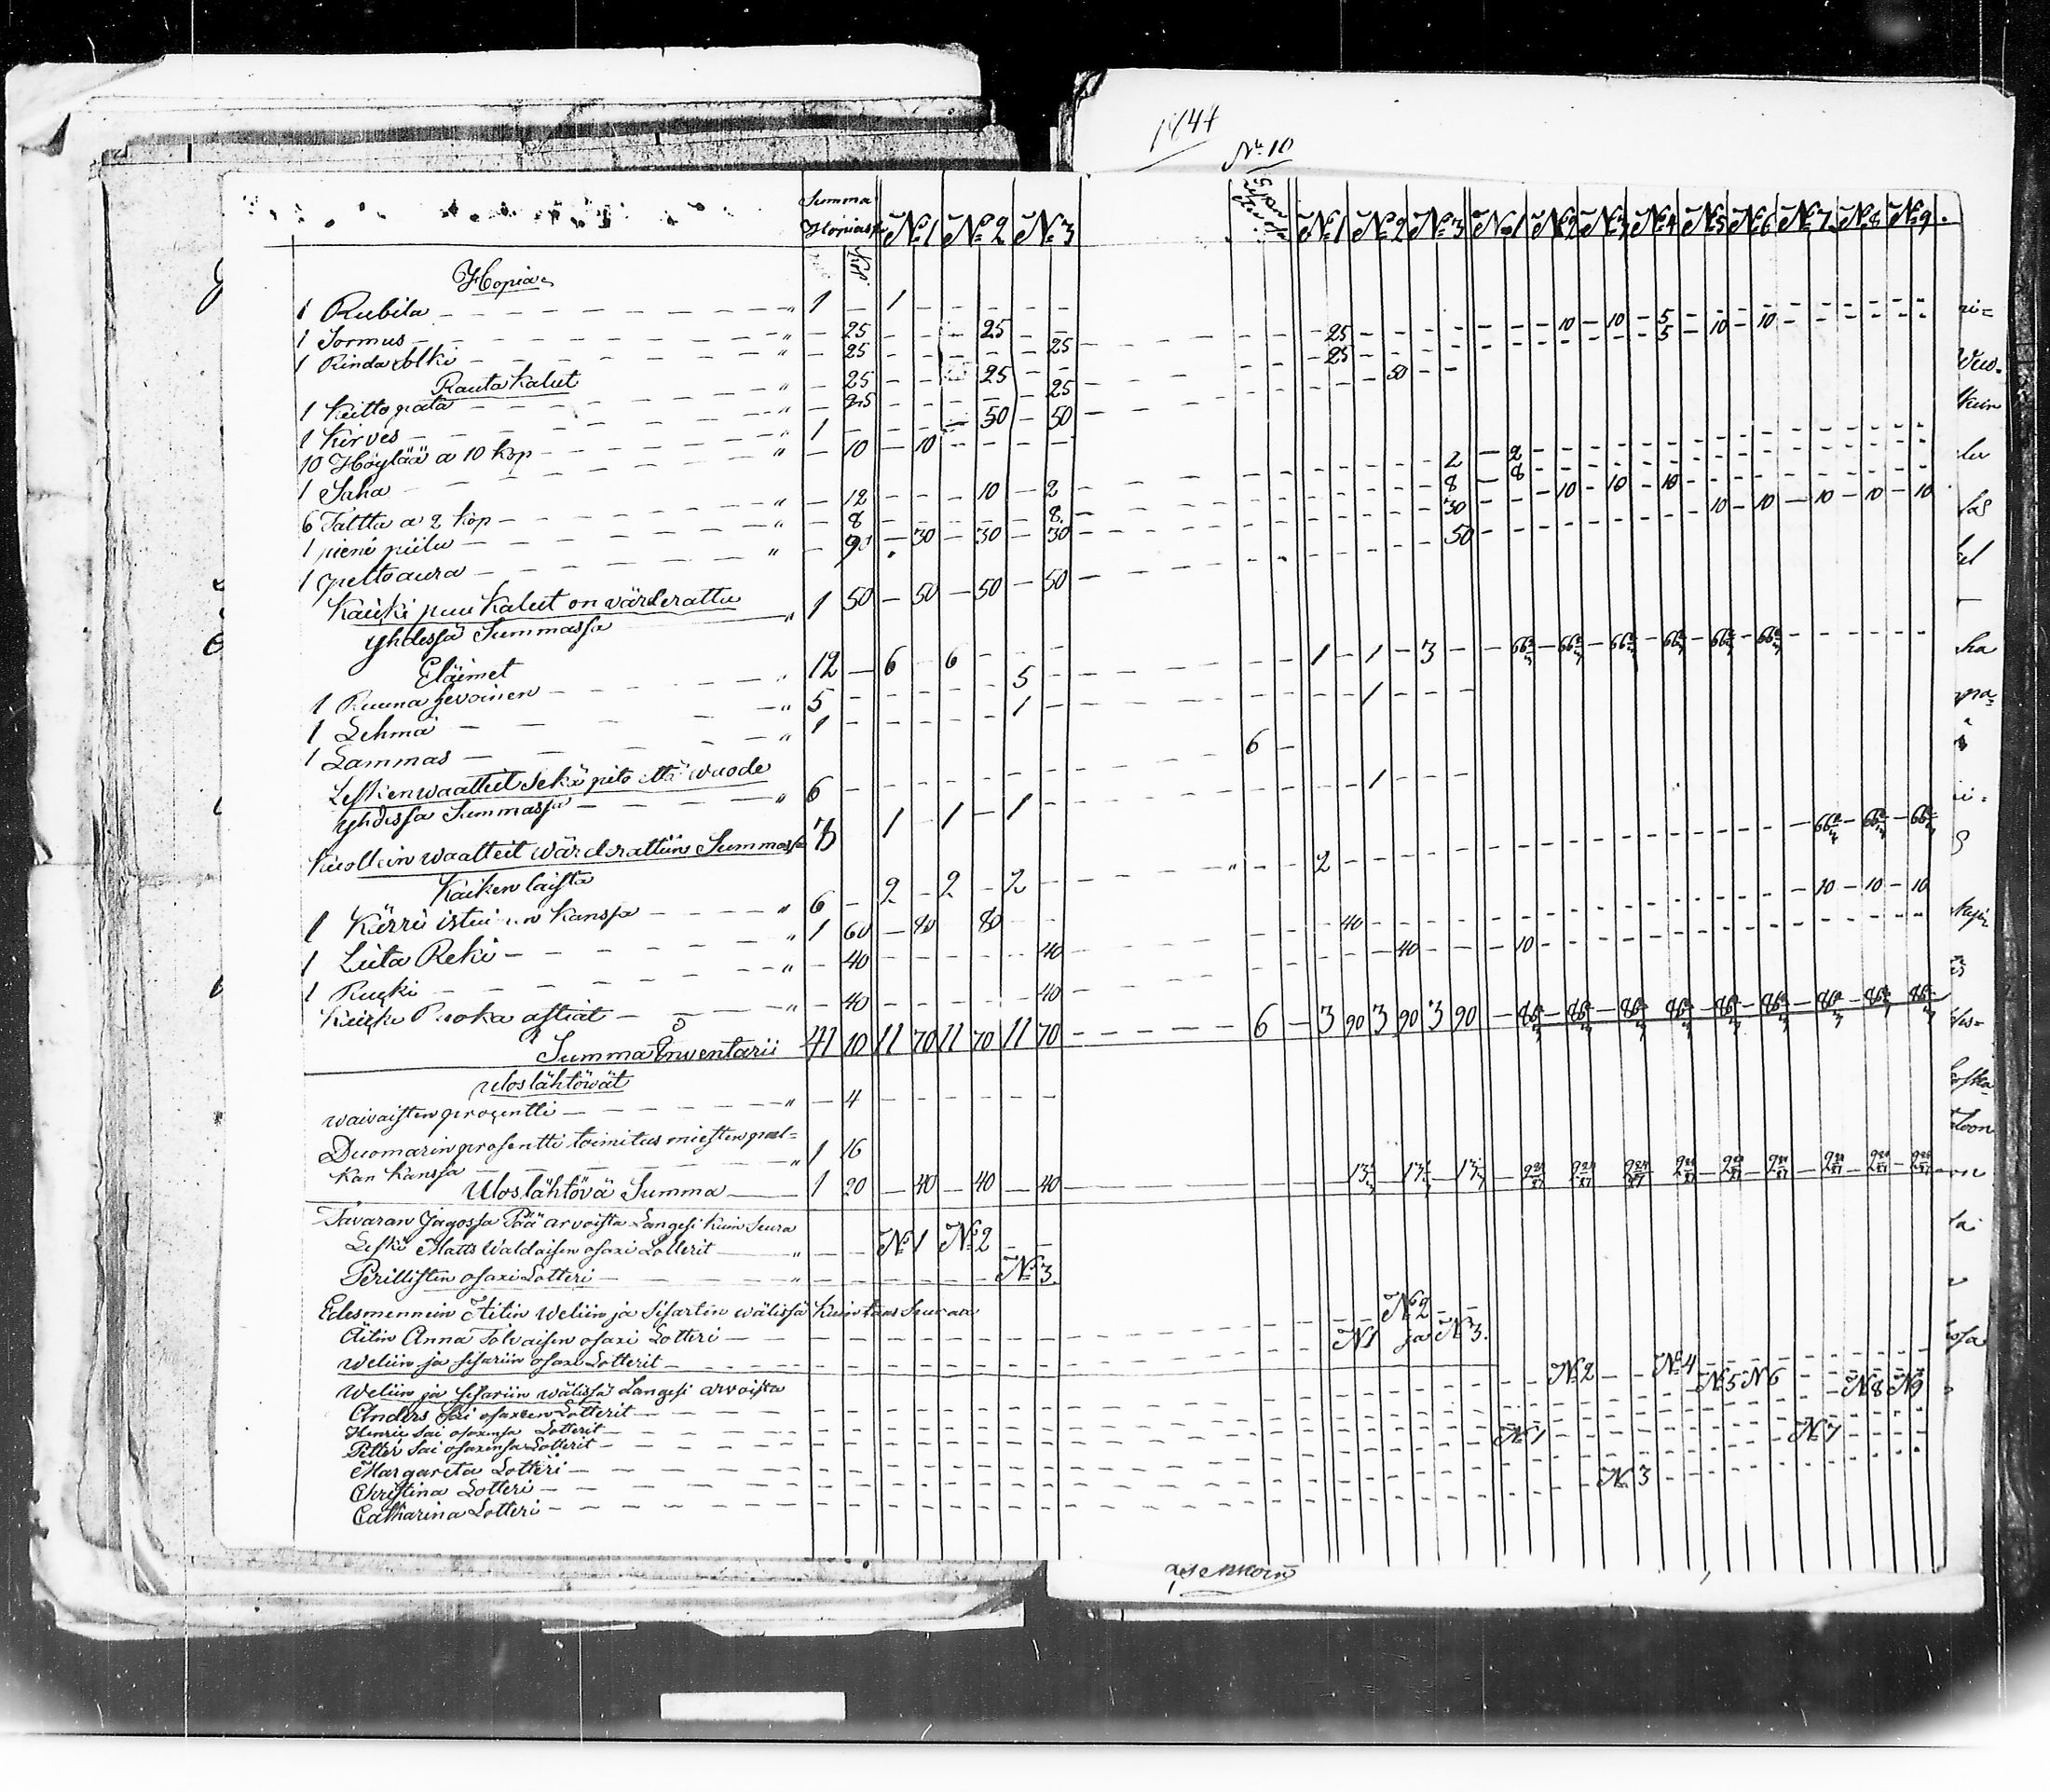 Nº 10
Summa Hopiassa Nº 1 Nº 2 Nº 3 Nº 1 Nº 2 Nº 3 Nº 1 Nº 2 Nº 3 Nº 4 Nº 5 Nº 6 Nº 7 Nº 8 Nº 9
Kop.
Hopia
1 Rubila — " 1 — 1
1 Sormus — " — 25 — 25 — 25 — 10 — 10 — 5 — —
1 Rinda Solki — " — 25 — 25 — 25 — 5 — 10 — 10
Rauta Kalut
1 Keittopata — " — 25 — 25 — 50
1 Kirves — " — 25 — 25
10 Höylää a 10 kop — " 1 — 50 — 50
1 Saha — " — 10 — 10
6 Taltta a 2 kop — " — 12 — 10 — 2 — 2 — 2
1 pieni piilu — " — 8 — 8 — 8 — 8
1 peltoaura — " — 90 — 30 — 30 — 30 — 30 — 10 — 10 — 10
Kaicki puu Kalut on värderattu
yhdessä Summassa " 1 50 — 50 — 50 — 50 — 50 — 10 — 10 — 10 — 10 — 10
Eläimet
1 Ruuna hevoinen — " 12 — 6 — 6 — 1 — 1 — 3 — 66⅔ — 66⅔ — 66⅔ — 66⅔ — 66⅔ — 66⅔
1 Lehmä — " 5 — 5 — 1
1 Lammas — " 1 — 1
Leskenwaatteit Sekä pito että wuode
yhdessä Summassa — " 6 — 6 —
Kuolluin waatteit wärderattiin Summassa 3 1 — 1 — 1 — 1
Kaiken laista
1 Kärri istuimen kanssa — " 6 — 2 — 2 — 2 — 2 — 66⅔ — 66⅔ — 66⅔
1 Liita Reki — " 1 60 — 80 80
1 Rucki — " — 40 — 40 — 40 — 10 — 10 — 10
Kaicki Ruoka astiat — " — 40 — 40 — 40 — 10
Summa Inventarii 41 10 11 70 11 70 11 70 — 6 — 3 90 3 90 3 90 — 86⅔ — 86⅔ — 86⅔ — 86⅔ — 86⅔ — 86⅔ — 86⅔ — 86⅔ — 86⅔
Uloslähtöwät
waivaisten procentti — " — 4
Duomarin prosentti toimitus miesten pal=
kan kanssa " 1 16
Uloslähtövä Summa — 1 20 — 40 — 40 — 40 — 13⅓ 13⅓ 13⅓
Tavaran Jagossa Pää arvoista Langesi kuin Seura
Leski Matts Waldaisen osaxi Lotterit — " — Nº 1 Nº 2
Perillisten osaxi Lotteri — " — Nº 3
Edesmennein Äitin Weliin ja Sisartin wälissä kuin taas Seuraa
Äitin Anna Tolvaisen osaxi Lotteri — Nº 2
Weliin ja sisariin osaxi Lotterit — N 1 ja Nº 3.
Weliin ja sisariin wälissä Langesi arvoista
Anders Sai osaxeen Lotterit — Nº 2 — Nº 4
Henric Sai osaxensa Lotterit — Nº 5 Nº 6
Petter Sai osaxensa Lotterit — Nº 8 Nº 9
Margareta Lotteri — Nº 1
Christina Lotteri — Nº 7
Catharina Lotteri — Nº 3